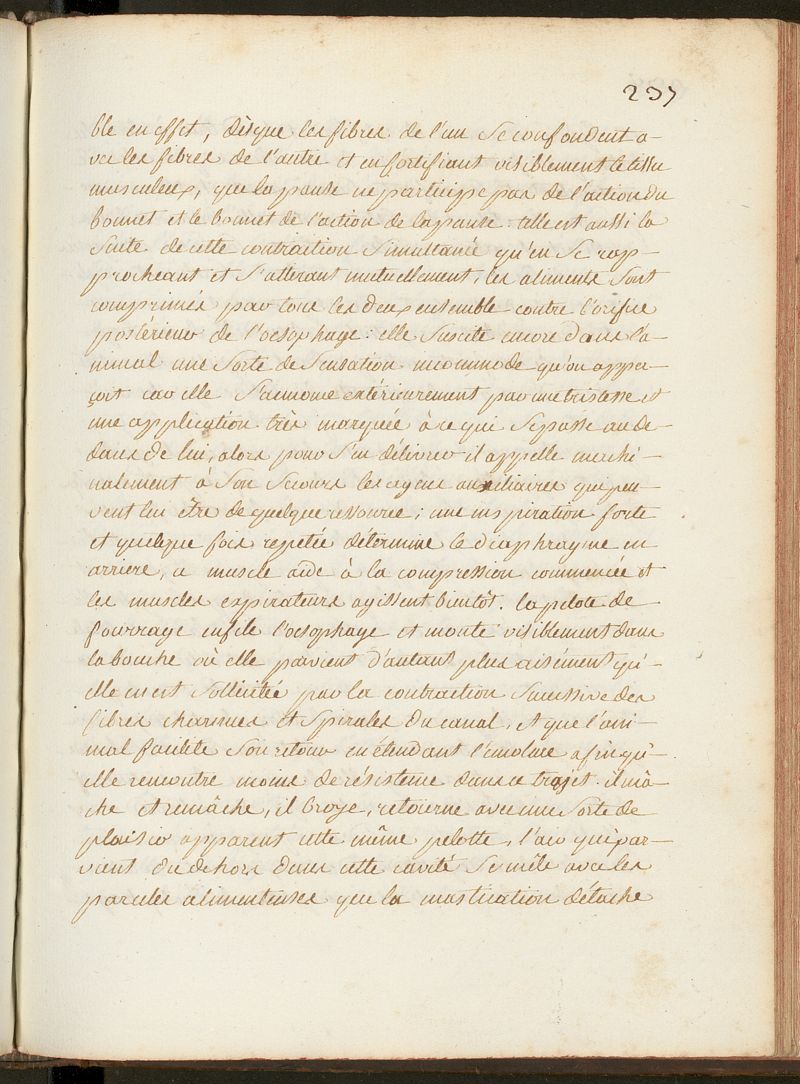 237
ble en effet, dèsque les fibres de l'un se confondent a-
vec les fibres de l'autre et en fortifiant visiblement le tissu
musculeux, que la panse ne participe pas de l'action du
bonnet et le bonnet de l'action de la panse. telle est aussi la
suite de cette contraction simultanée qu'en se rap-
procheant et s'atterant mutuellement, les aliments sont
comprimés par tous les deux ensemble contre l'orifice
postérieur de l'oesophage: elle suscite encore dans l'a-
nimal une sorte de sensation incommode qu'on apper-
çoit car elle s'annonce extérieurement par une tristesse et
une application très marquée à ce qui se passe au de-
dans de lui, alors pour s'en délivrer il appelle machi-
nalement à son secours les agens auxiliaires qui peu-
vent lui être de quelque ressource; une inspiration forte
et quelque fois repetée détermine le diaphragme en
arriere, ce muscle aide à la compression commencée et
les muscles expirateurs agissent bientôt. la pelote de
fourrage enfile l'oesophage et monte visiblement dans
la bouche où elle parvient d'autant plus aisément qu'-
elle en est sollicitée par la contraction successive des
fibres charnues et spirales du canal, et que l'ani-
mal facilite son retour en étendant l'encolure afin qu'-
elle rencontre moins de résistence dans ce trajet. il mâ-
che et remâche, il broye, retourne avec une sorte de
plaisir apparent cette même pelotte, l'air qui par-
vient du dehors dans cette cavité se mêle avec les
parcelles alimenteuses que la mastication détache